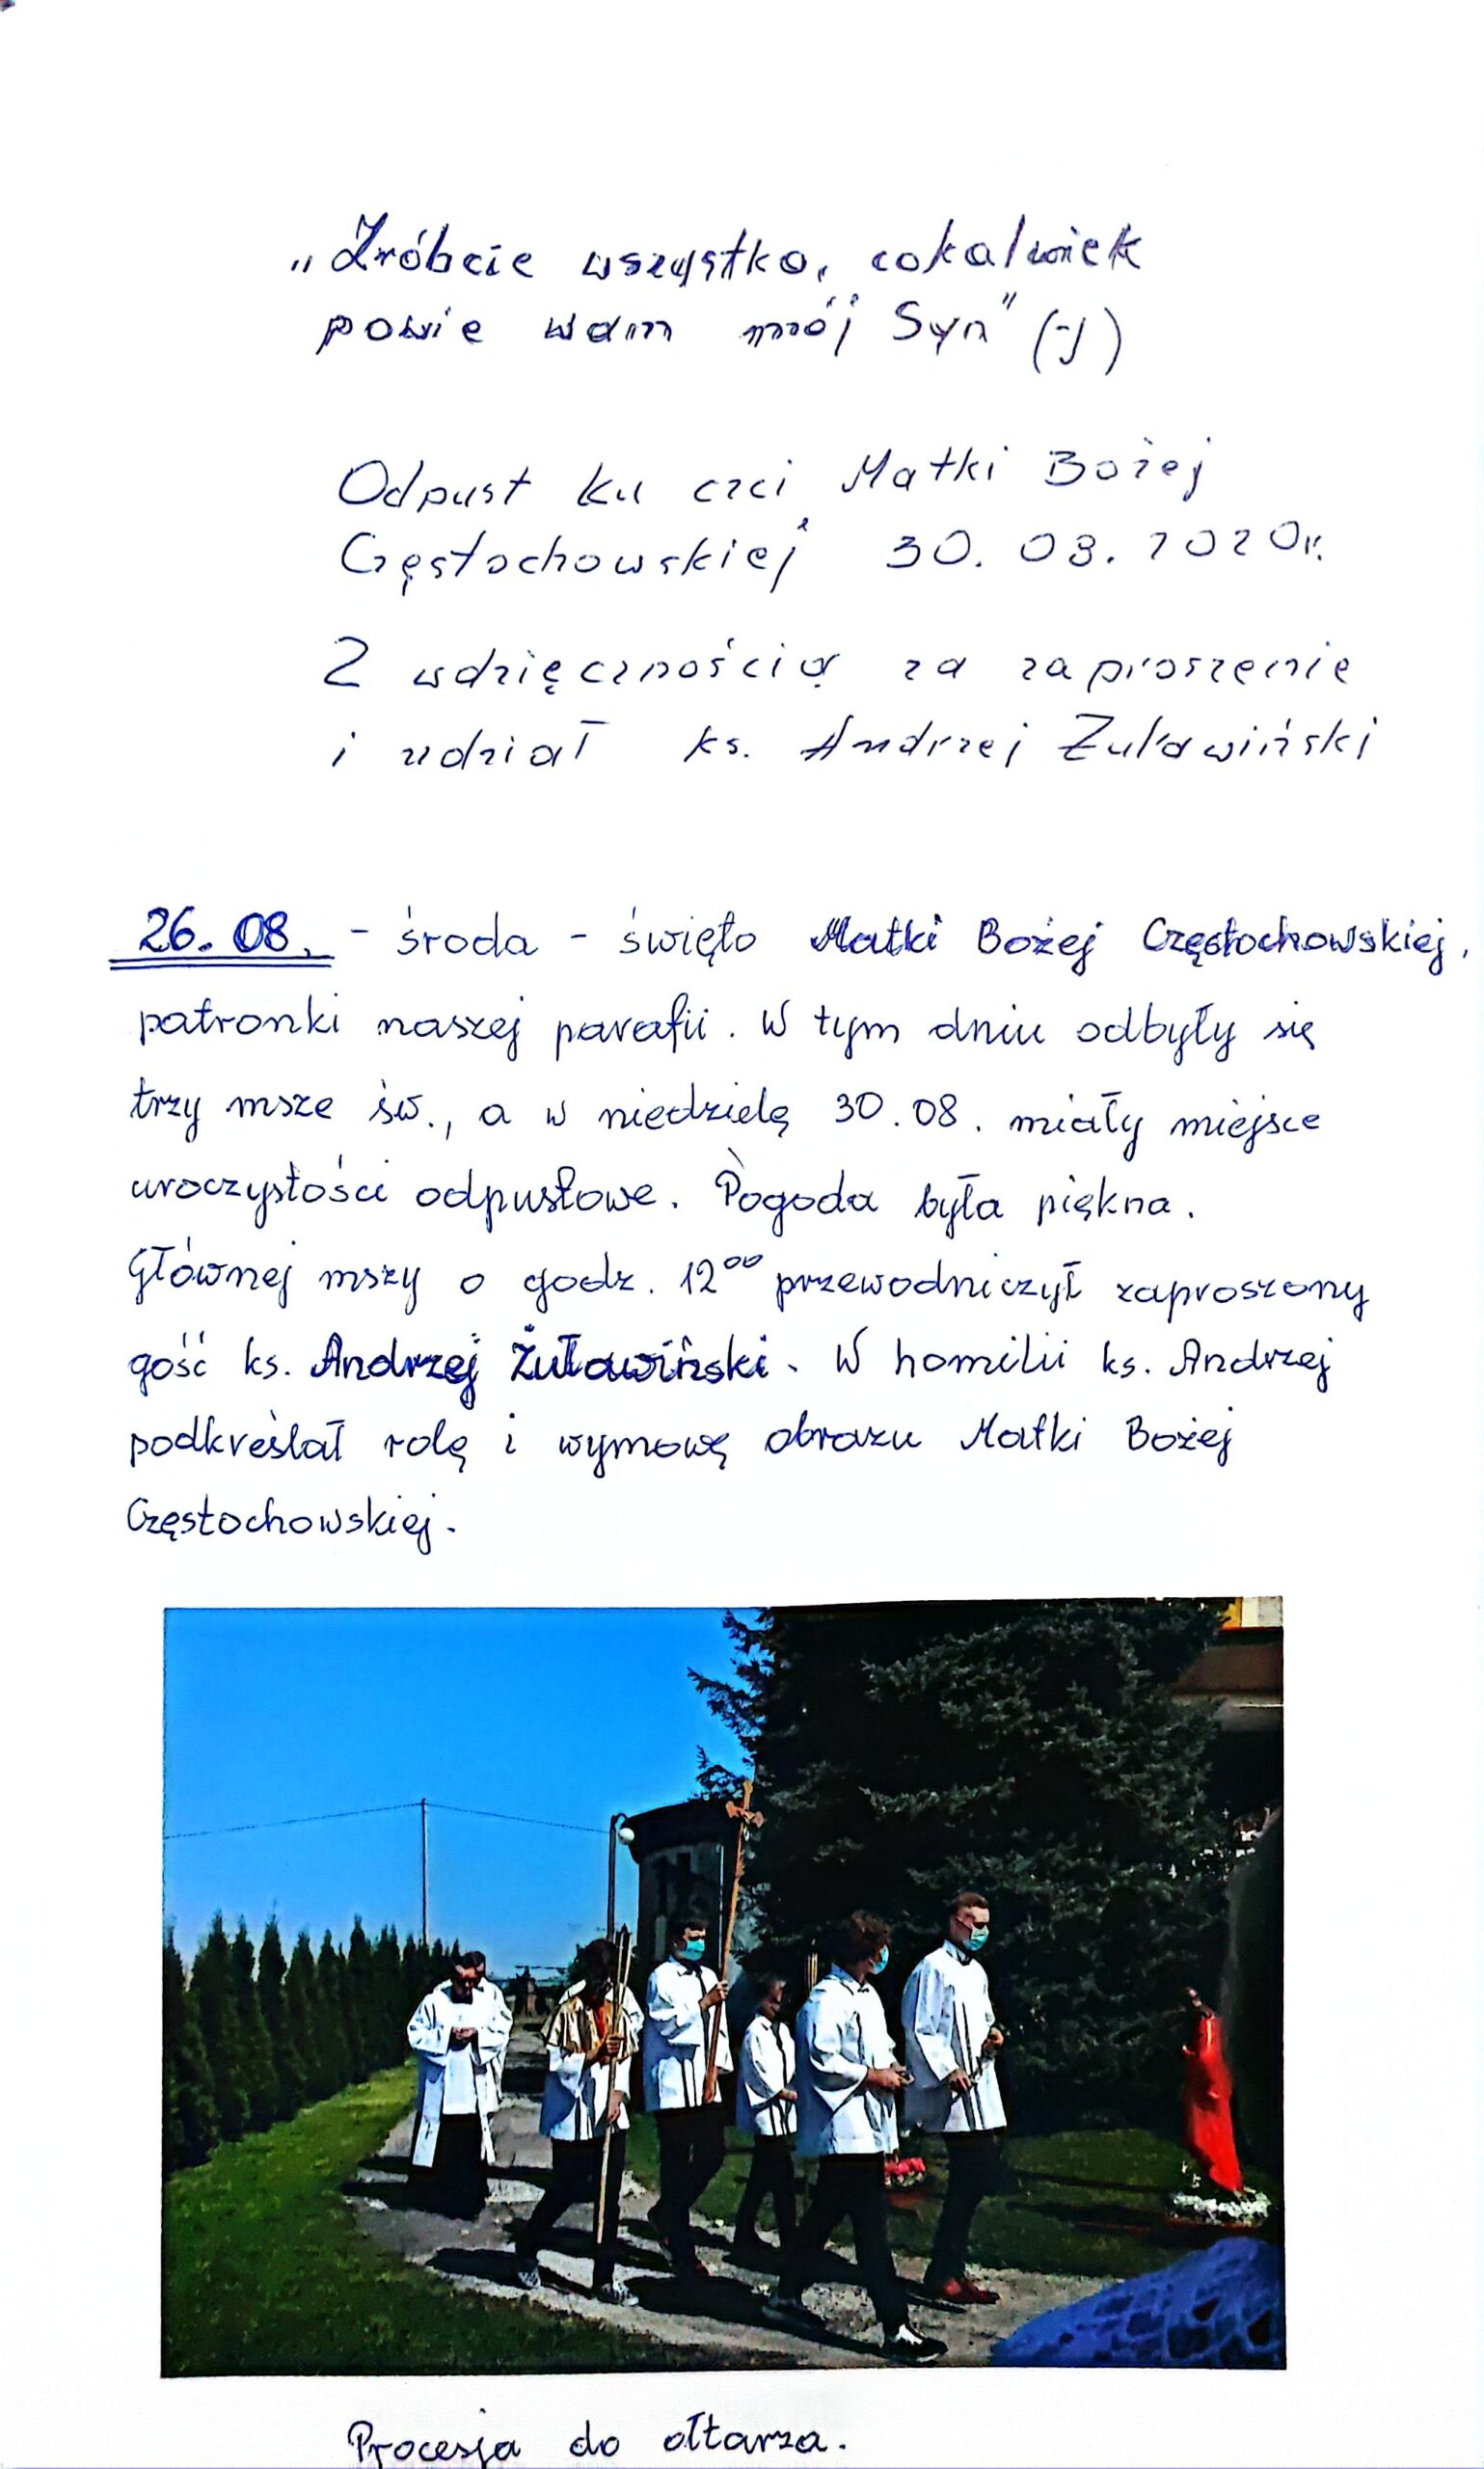 „Zróbcie wszystko, cokolwiek
powie wam mój Syn" (J)
Odpust ku czci Matki Bożej
Częstochowskiej 30.08.2020r.
Z wdzięcznością za zaproszenie
i udział ks. Andrzej Żuławiński
26.08. - środa - święto Matki Bożej Częstochowskiej,
patronki naszej parafii. W tym dniu odbyły się
trzy msze św., a w niedzielę 30.08. miały miejsce
uroczystości odpustowe. Pogoda była piękna.
Głównej mszy o godz. 12⁰⁰ przewodniczył zaproszony
gość ks. Andrzej Żuławiński. W homilii ks. Andrzej
podkreślał rolę i wymowę obrazu Matki Bożej
Częstochowskiej.
Procesja do ołtarza.